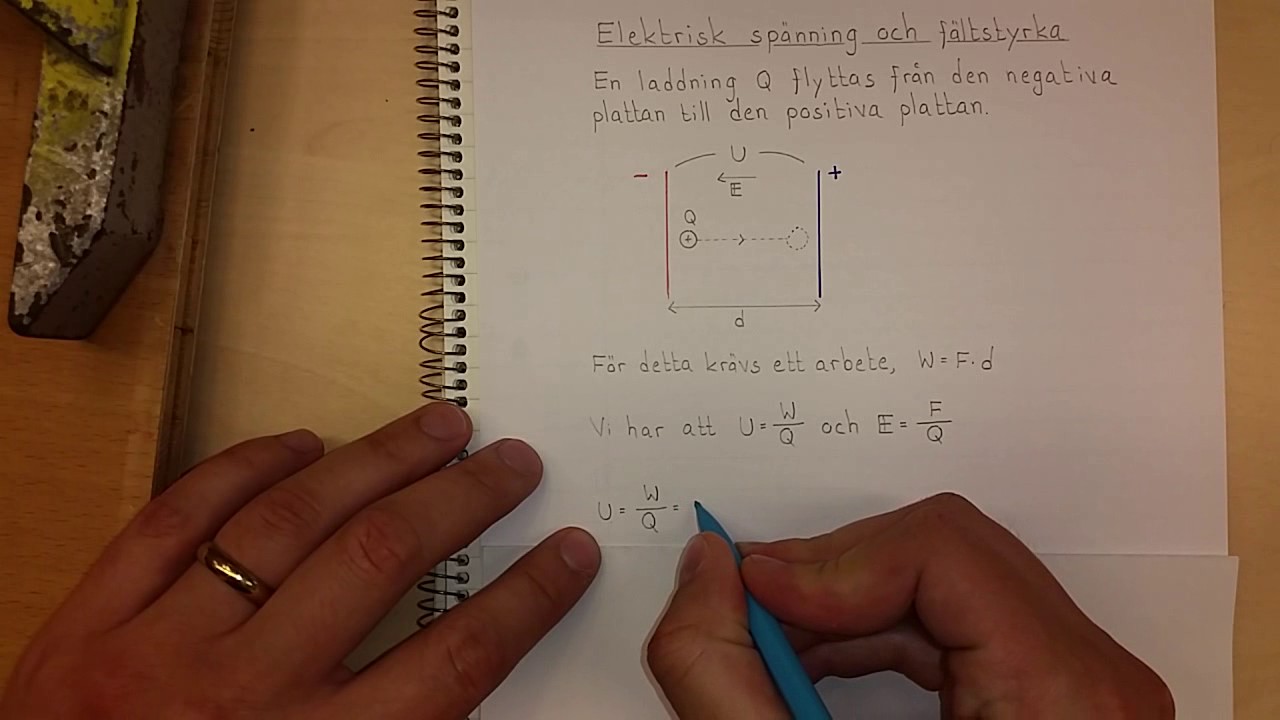 Elektrisk spänning och fältstyrka
En laddning Q flyttas från den negativa
plattan till den positiva plattan.
U
- +
E
Q
+
d
För detta krävs ett arbete, W = F·d
Vi har att U = W/Q och E = F/Q
U = W/Q =